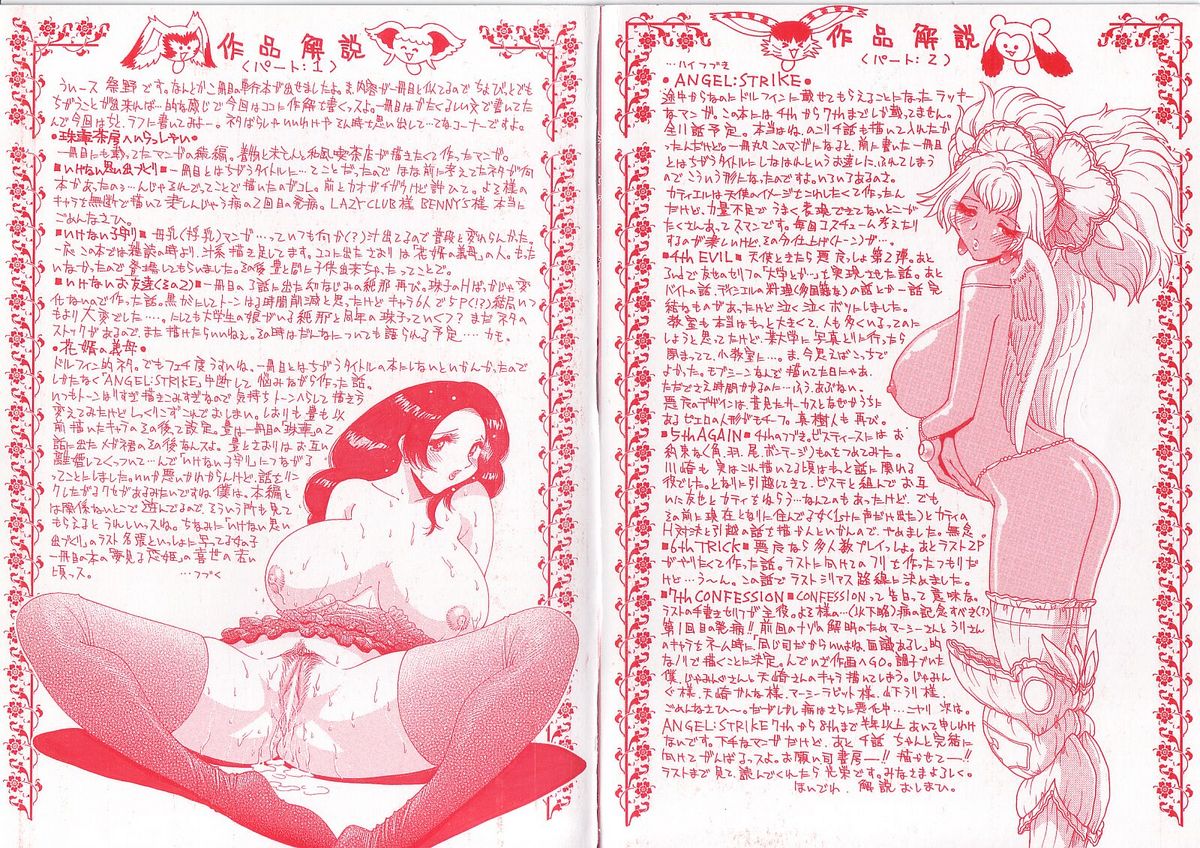 作品解説
(パート:1)
ういース 餐野です。なんとか二冊目の単行本が出せましたよ。ま、内容が一冊目と似てるので ちょびっとでも
ちがうことが出来れば…的な感じで今回はココに作解を書くっスよ。一冊目はかたくるしい文で書いてた
んで今回はちと、ラフに書いてみよー。ネタばらしや いいわけや そん時を思い出して…てなコーナーですよ。
●珠事茶房へいらっしゃい●
一冊目にも載ってたマンガの続編。着物と未亡人と和風喫茶店が描きたくて作ったマンガ。
■いけない思い出づくり■ 一冊目とはちがうタイトルに…ってことだったので ほな前に考えてたネタが何
本かあったのぅ…んじゃそんでってことで描いたのがコレ。前とカオがチガウけど許ひて。よる様の
キャラを無断で描いて妻しんじゃう病の2回目の発病。LAZY CLUB様 BENNY'S様 本当に
ごめんなさひ。
■いけない子守り■ 母乳マンガ…っていつも何か(?)汁出てるので普段と変わらんかった。
一応 この本では雑誌の時より、汁系描き足してます。ココに出たさおりは「花婿の義母」の人。もったい
いなかったので登場してもらいました。その後 豊と即に子供出来ちゃったってことで。
■いけないお友達(その2)■ 一冊目の3話に出た幼なじみの絶那再び。珠子のHばっかじゃ変
化ないので作った話。
もより大変でした…。にしても大学生の娘がいる絶那と同年の珠子っていくつ? まだネタの
ストックがあるので、また描けたらいいねぇ。その時はだんなについても語られる予定……カモ。
●花婿の義母●
ドルフィン的ネタ。でもフェチ度うすいね。一冊目とはちがうタイトルの本にしないといかんかったので
しかたなく「ANGEL:STRIKE」中断して 悩みながら作った話。
いつもトーンはりすぎ描きこみすぎなので気持ちトーンへらして描き方
変えてみたけど しっくりこずこんでおしまい。しおりも豊も以
前描いたキャラのその後で設定。豊は一冊目の「珠事」の2
話に出たメガネ君のその後なんスよ。豊とさおりはお互い
離婚してくっついて…んで「いけない子守り」につながる
ってことにしました。いいか悪いかわからんけど、話をリン
クしたがるクセがあるみたいですね僕は。本編と
は関係ないとこで遊んでるので、そういう所も見て
もらえるとうれしいっスね。ちなみに「いけない思い
出づくり」のラスト 名張といっしょに写ってる女の子
一冊目の本の「夢見る恋姫」の喜世の若い
頃っス。 …つづく
作品解説
(パート:2)
…ハイつづき
●ANGEL:STRIKE●
途中からなのにドルフィンに載せてもらえることになったラッキー
なマンガ。この本には4thから7thまでしか載ってません。
全11話予定。本当はね、のこり4話も描いて入れたか
ったんだけど。一冊丸々このマンガになると、前に書いた一冊目
とはちがうタイトルにしなはれというお達しに、ふれてしまう
のでこういう形になったのですよ。いろいろあるのさ。
カティエルは天使のイメージをこわしたくて作ったん
だけど、力量不足で うまく表現できてないとこが
たくさんあってスマンです。毎回コスチューム考えたり
するのが楽しいけど、その分仕上げ(トーン)が…。
■4th EVIL■ 天使ときたら悪魔っしょ 第2弾。あと
3rdで友也のセリフの「大学とか…」を実現させた話。あと
バイトの話、ティンエルの料理(多国籍な)の話とか一話完
結なものがあったけど泣く泣くボツりしました。
教室も本当はもっと大きくて、人も多くいるってのに
しようと思ってたけど、某大学に写真とりに行ったら
閉まってて、小教室に…。ま、今思えばこっちで
よかった。モブシーンなんて描いてた日にゃあ、
ただでさえ時間かかるのに……ふう、あぶない。
悪魔のデザインは昔見たサーカスとなぜかうちに
あるピエロの人形がモチーフ。真樹人も再び。
■5th AGAIN■ 4thのつづき。ビスティースには お
約束なく角、羽、尾(ボンテージ)ものをつれてみた。
川崎も 実はこん描いてる頃はもっと話に関わる
役でした。となりに引越してきて、ビスチと組んでお互
いに友也とカティをねらう…なんてのもあったけど、でも
その前に現在となりに住んでる女(1stに声だけ出た)とカティの
H対決と引越の話を描かんといかんので、やめました。無念。
■6th TRICK■ 悪魔なら多人数プレイっしょ。あとラスト2P
がやりたくて作った話。ラストに向けてのフリを作ったつもりだ
けど…う〜ん。この話でラスト シリアス路線に決めました。
■7th CONFESSION■ CONFESSIONって「告白」って意味な。
ラストの手書きセリフが主役。よる様の…(以下略)病の記念すべき(?)
第1回目の発病!! 前回のナゾの解明のためマーシーさんとうりさん
のキャラをネーム時に「同じ司だからいいよね、面識あるし。」的
なノリで描くことに決定。んでいざ作画へGO。調子づいた
僕、じゃみんぐさんと天崎さんのキャラ描いてしまう。じゃみん
ぐ様、天崎かんな様、マーシーラビット様、山下うり様、
ごめんなさひ〜。だがしかし病はさらに悪化中…こりゃ次は。
ANGEL:STRIKE 7thから8thまで半年以上あいて申しわけ
ないです。下手なマンガだけど、あと4話 ちゃんと完結に
向けてがんばるっスよ。お願い司書房ー!! 描かせてー!!
ラストまで見て、読んでくれたら光栄です。みなさまよろしく。
ほいでわ、解説おしまひ。